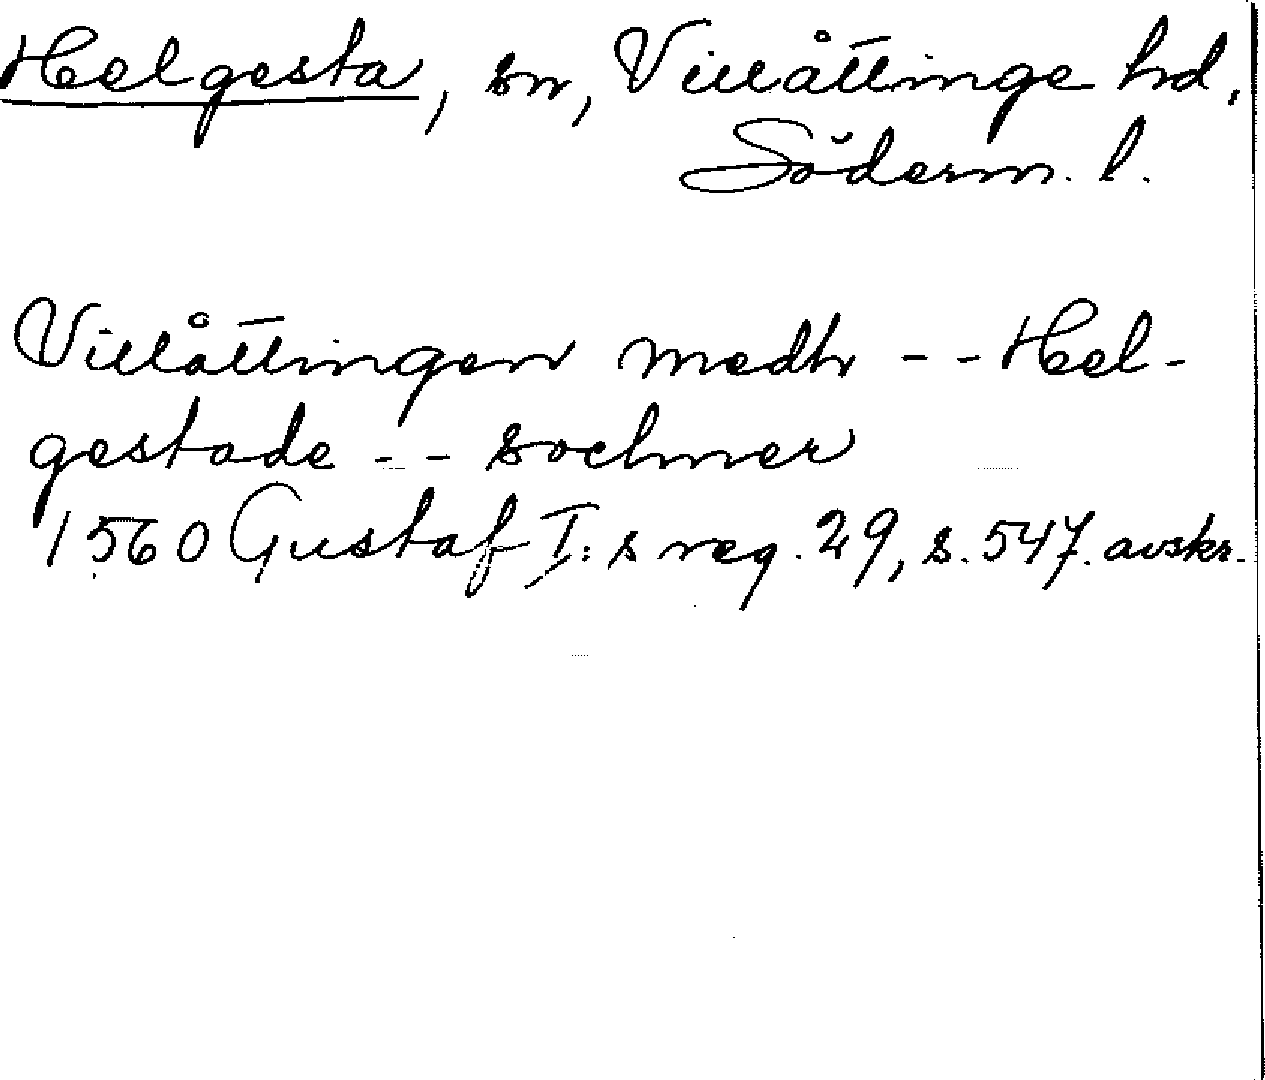 Helgesta, sn, Villåttinge hd,
Söderm. l.
Villåttingen medh - - Hel-
gestade - - sochner
1560 Gustaf I:s reg. 29, s. 547. avskr.